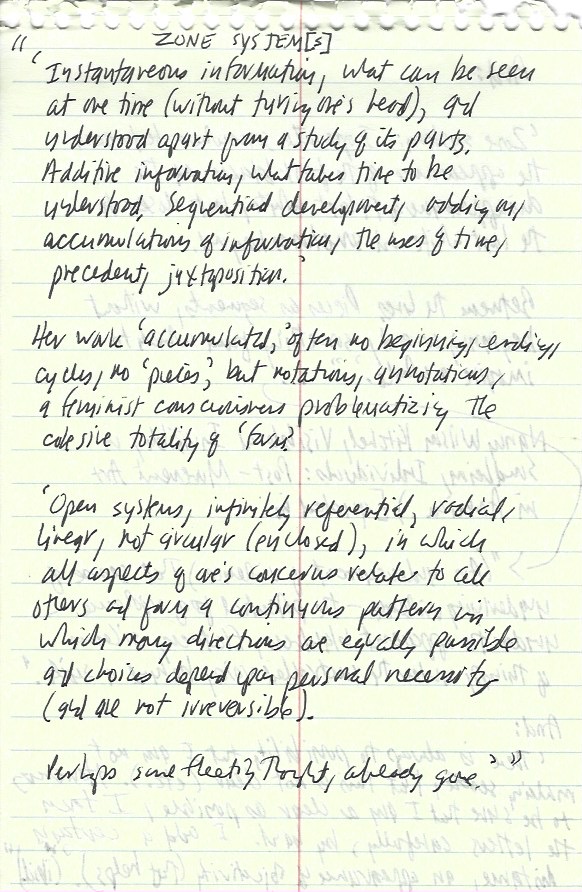 "
ZONE SYSTEM[S]
'Instantaneous information, what can be seen
at one time (without turning one's head), and
understood apart from a study of its parts.
Additive information, what takes time to be
understood, sequential development, adding on,
accumulations of information, the uses of time,
precedent, juxtaposition.'
Her work 'accumulated,' often no beginning, ending,
cycles, no 'pieces,' but notations, annotations,
a feminist consciousness problematizing the
cohesive totality of 'form.'
'Open systems, infinitely referential, radial,
linear, not circular (enclosed), in which
all aspects of one's concerns relate to all
others and form a continuous pattern in
which many directions are equally possible
and choices depend upon personal necessity
(and are not irreversible).
Perhaps some fleeting thought, already gone.' "